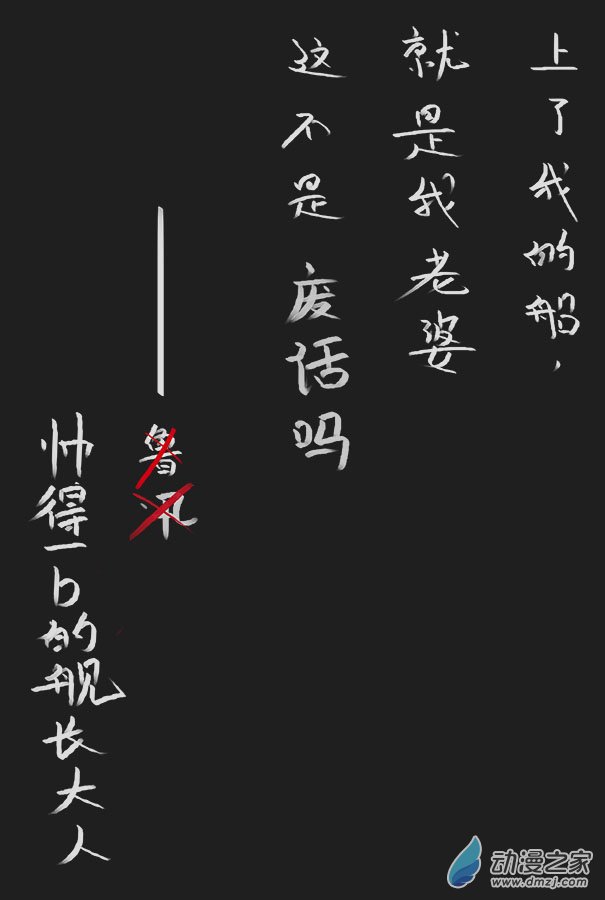 上了我的船，
就是我老婆
这不是废话吗
——鲁讯
帅得一b的舰长大人
动漫之家
www.dmzj.com